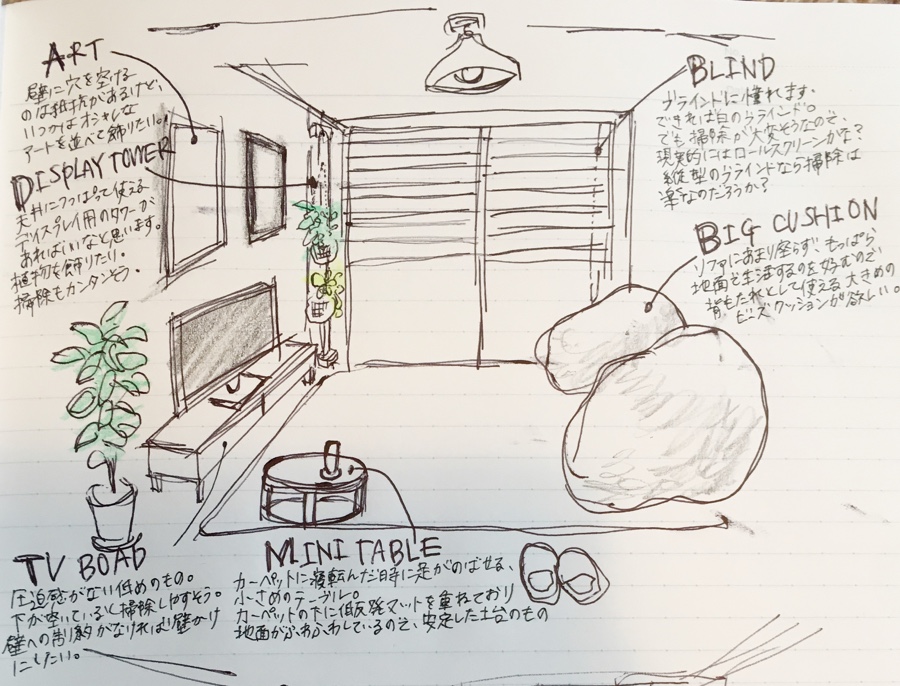 ART
壁に穴を空ける
のは抵抗があるけど、
いつかはオシャレな
アートを並べて飾りたい。
DISPLAY TOWER
天井につっぱって使える
ディスプレイ用のタワーが
あればいいなと思います。
植物を飾りたい。
掃除もカンタンそう。
BLIND
ブラインドに憧れます。
できれば白のブラインド。
でも掃除が大変そうなので、
現実的にはロールスクリーンかな？
縦型のブラインドなら掃除は
楽なのだろうか？
BIG CUSHION
ソファにあまり座らず、もっぱら
地面で生活するのを好むので、
背もたれとして使える大きめの
ビーズクッションが欲しい。
TV BOAD
圧迫感がない低めのもの。
下が空いていると掃除しやすそう。
壁への制約がなければ壁かけ
にしたい。
MINI TABLE
カーペットに寝転んだ時に足がのばせる、
小さめのテーブル。
カーペットの下に低反発マットを重ねており
地面がふわふわしているので、安定した土台のもの